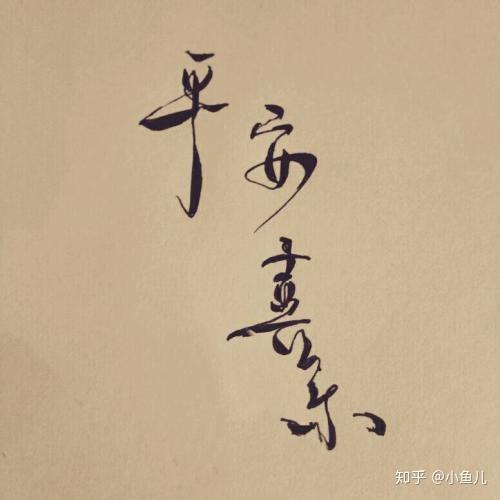 平安
喜乐
知乎 @小鱼儿